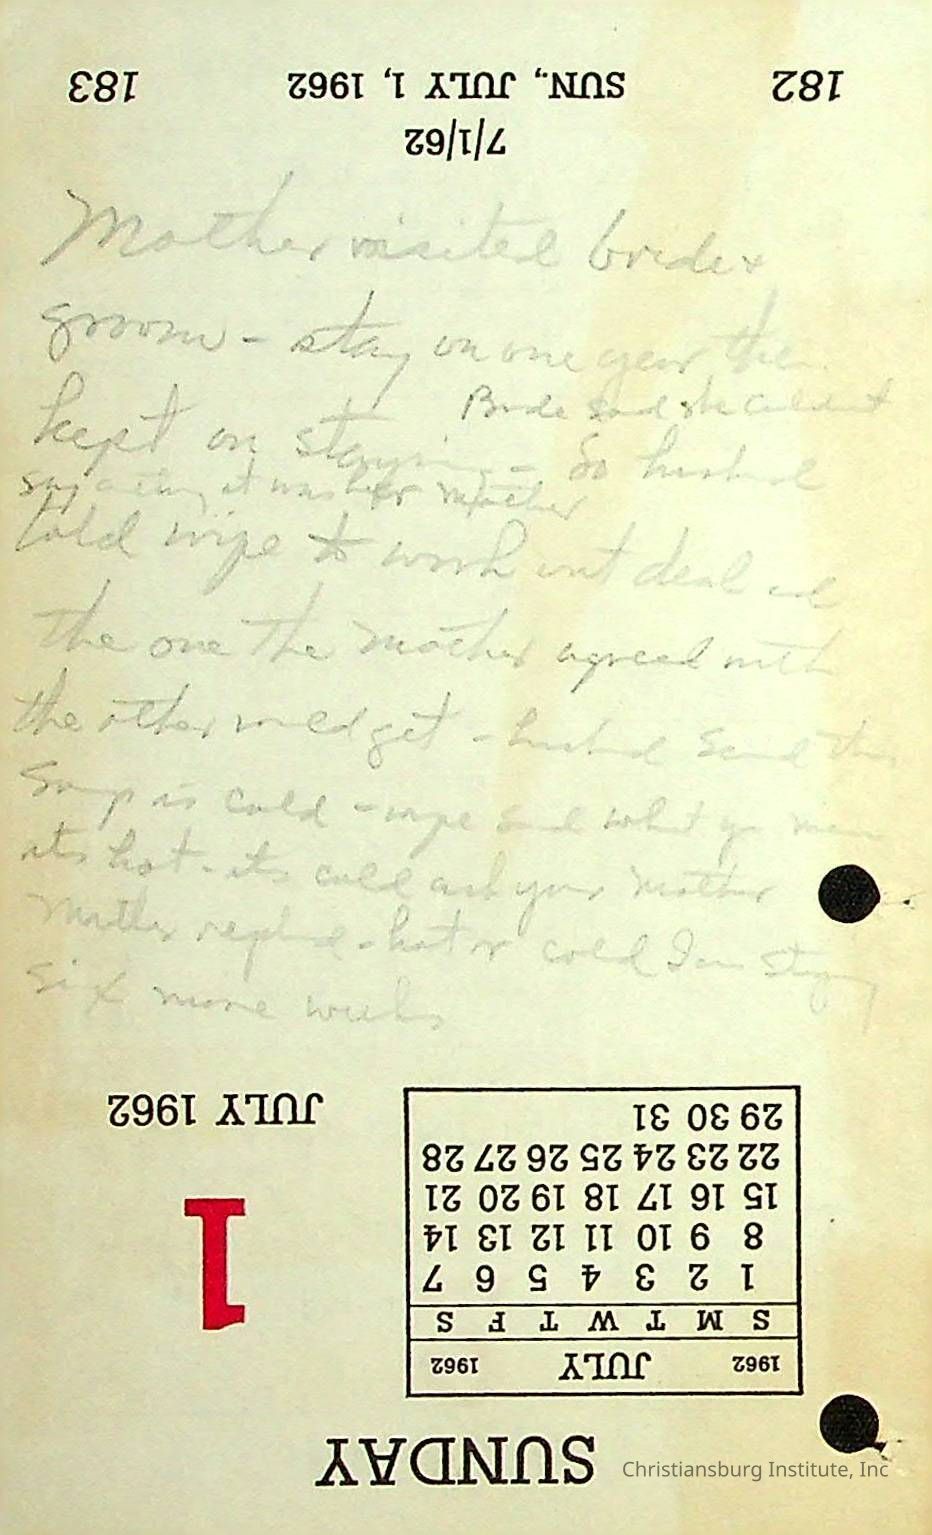 183 SUN., JULY 1, 1962 182
7/1/62
Mother visited bride +
groom - stay on one year the
Bride said she couldn't
kept on staying - So husband
say anything it was her mother
told wife to work out deal
the one the mother agreed with
the other would get - husband said this
soup is cold - wife said what you mean
its hot - its cold ask your mother
Mother replied - hot or cold I am staying
six more weeks
JULY 1962
29 30 31
22 23 24 25 26 27 28
15 16 17 18 19 20 21
8 9 10 11 12 13 14
1 2 3 4 5 6 7
S M T W T F S
1962 JULY 1962
1
SUNDAY
Christiansburg Institute, Inc